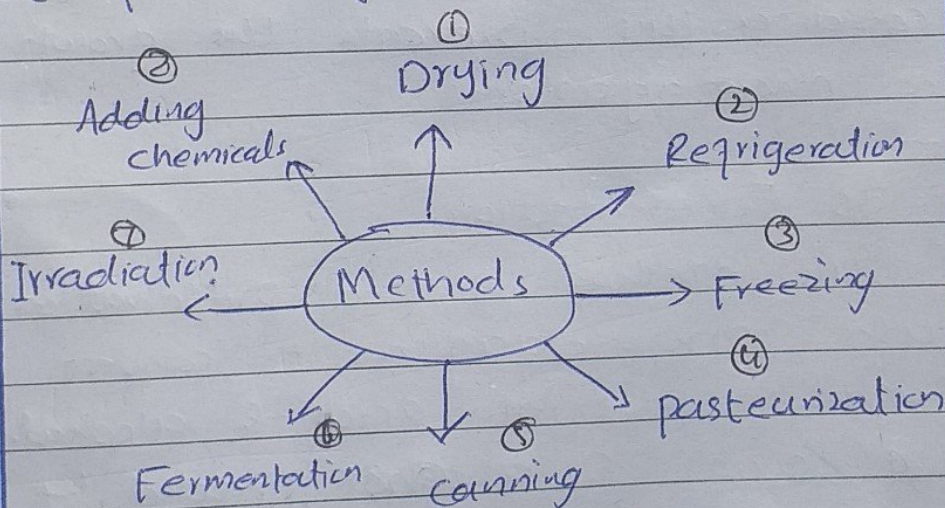 ①
Drying
②
Refrigeration
③
Freezing
④
Pasteurization
⑤
Canning
⑥
Fermentation
⑦
Irradiation
⑧
Adding
chemicals
Methods